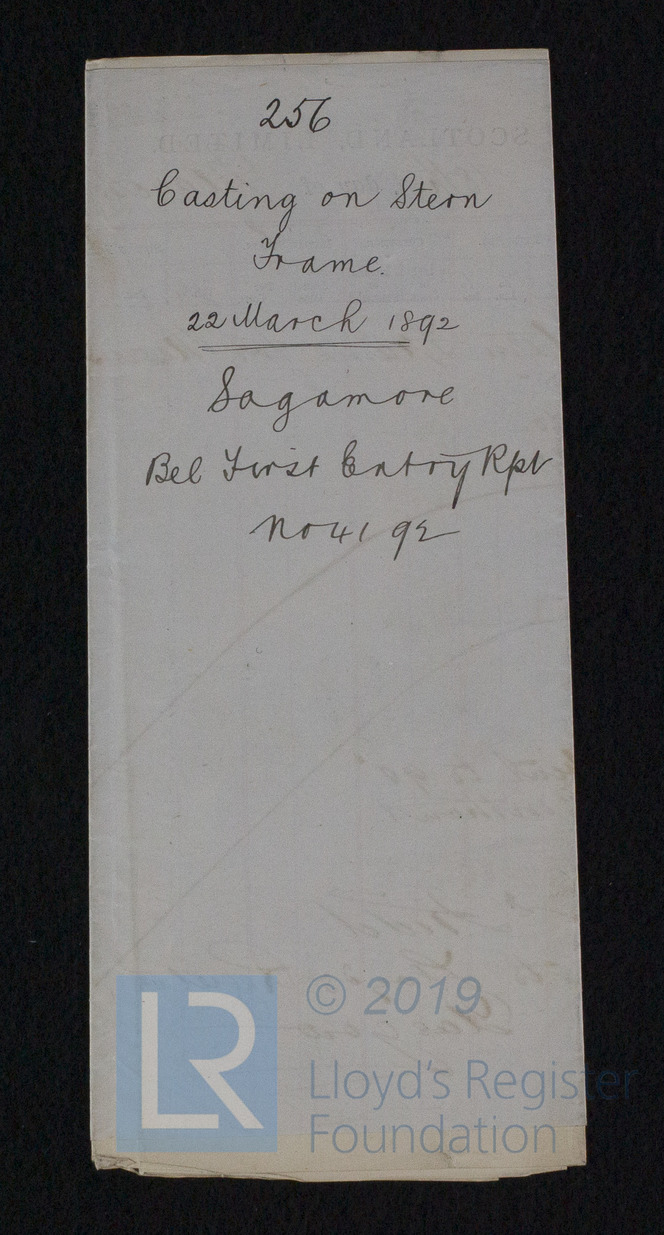 256
Casting on Stern
Frame.
22 March 1892
Sagamore
Bel First Entry Rpt
No 41 92
SCOTLAND, LIMITED.
LR
© 2019
Lloyd's Register
Foundation